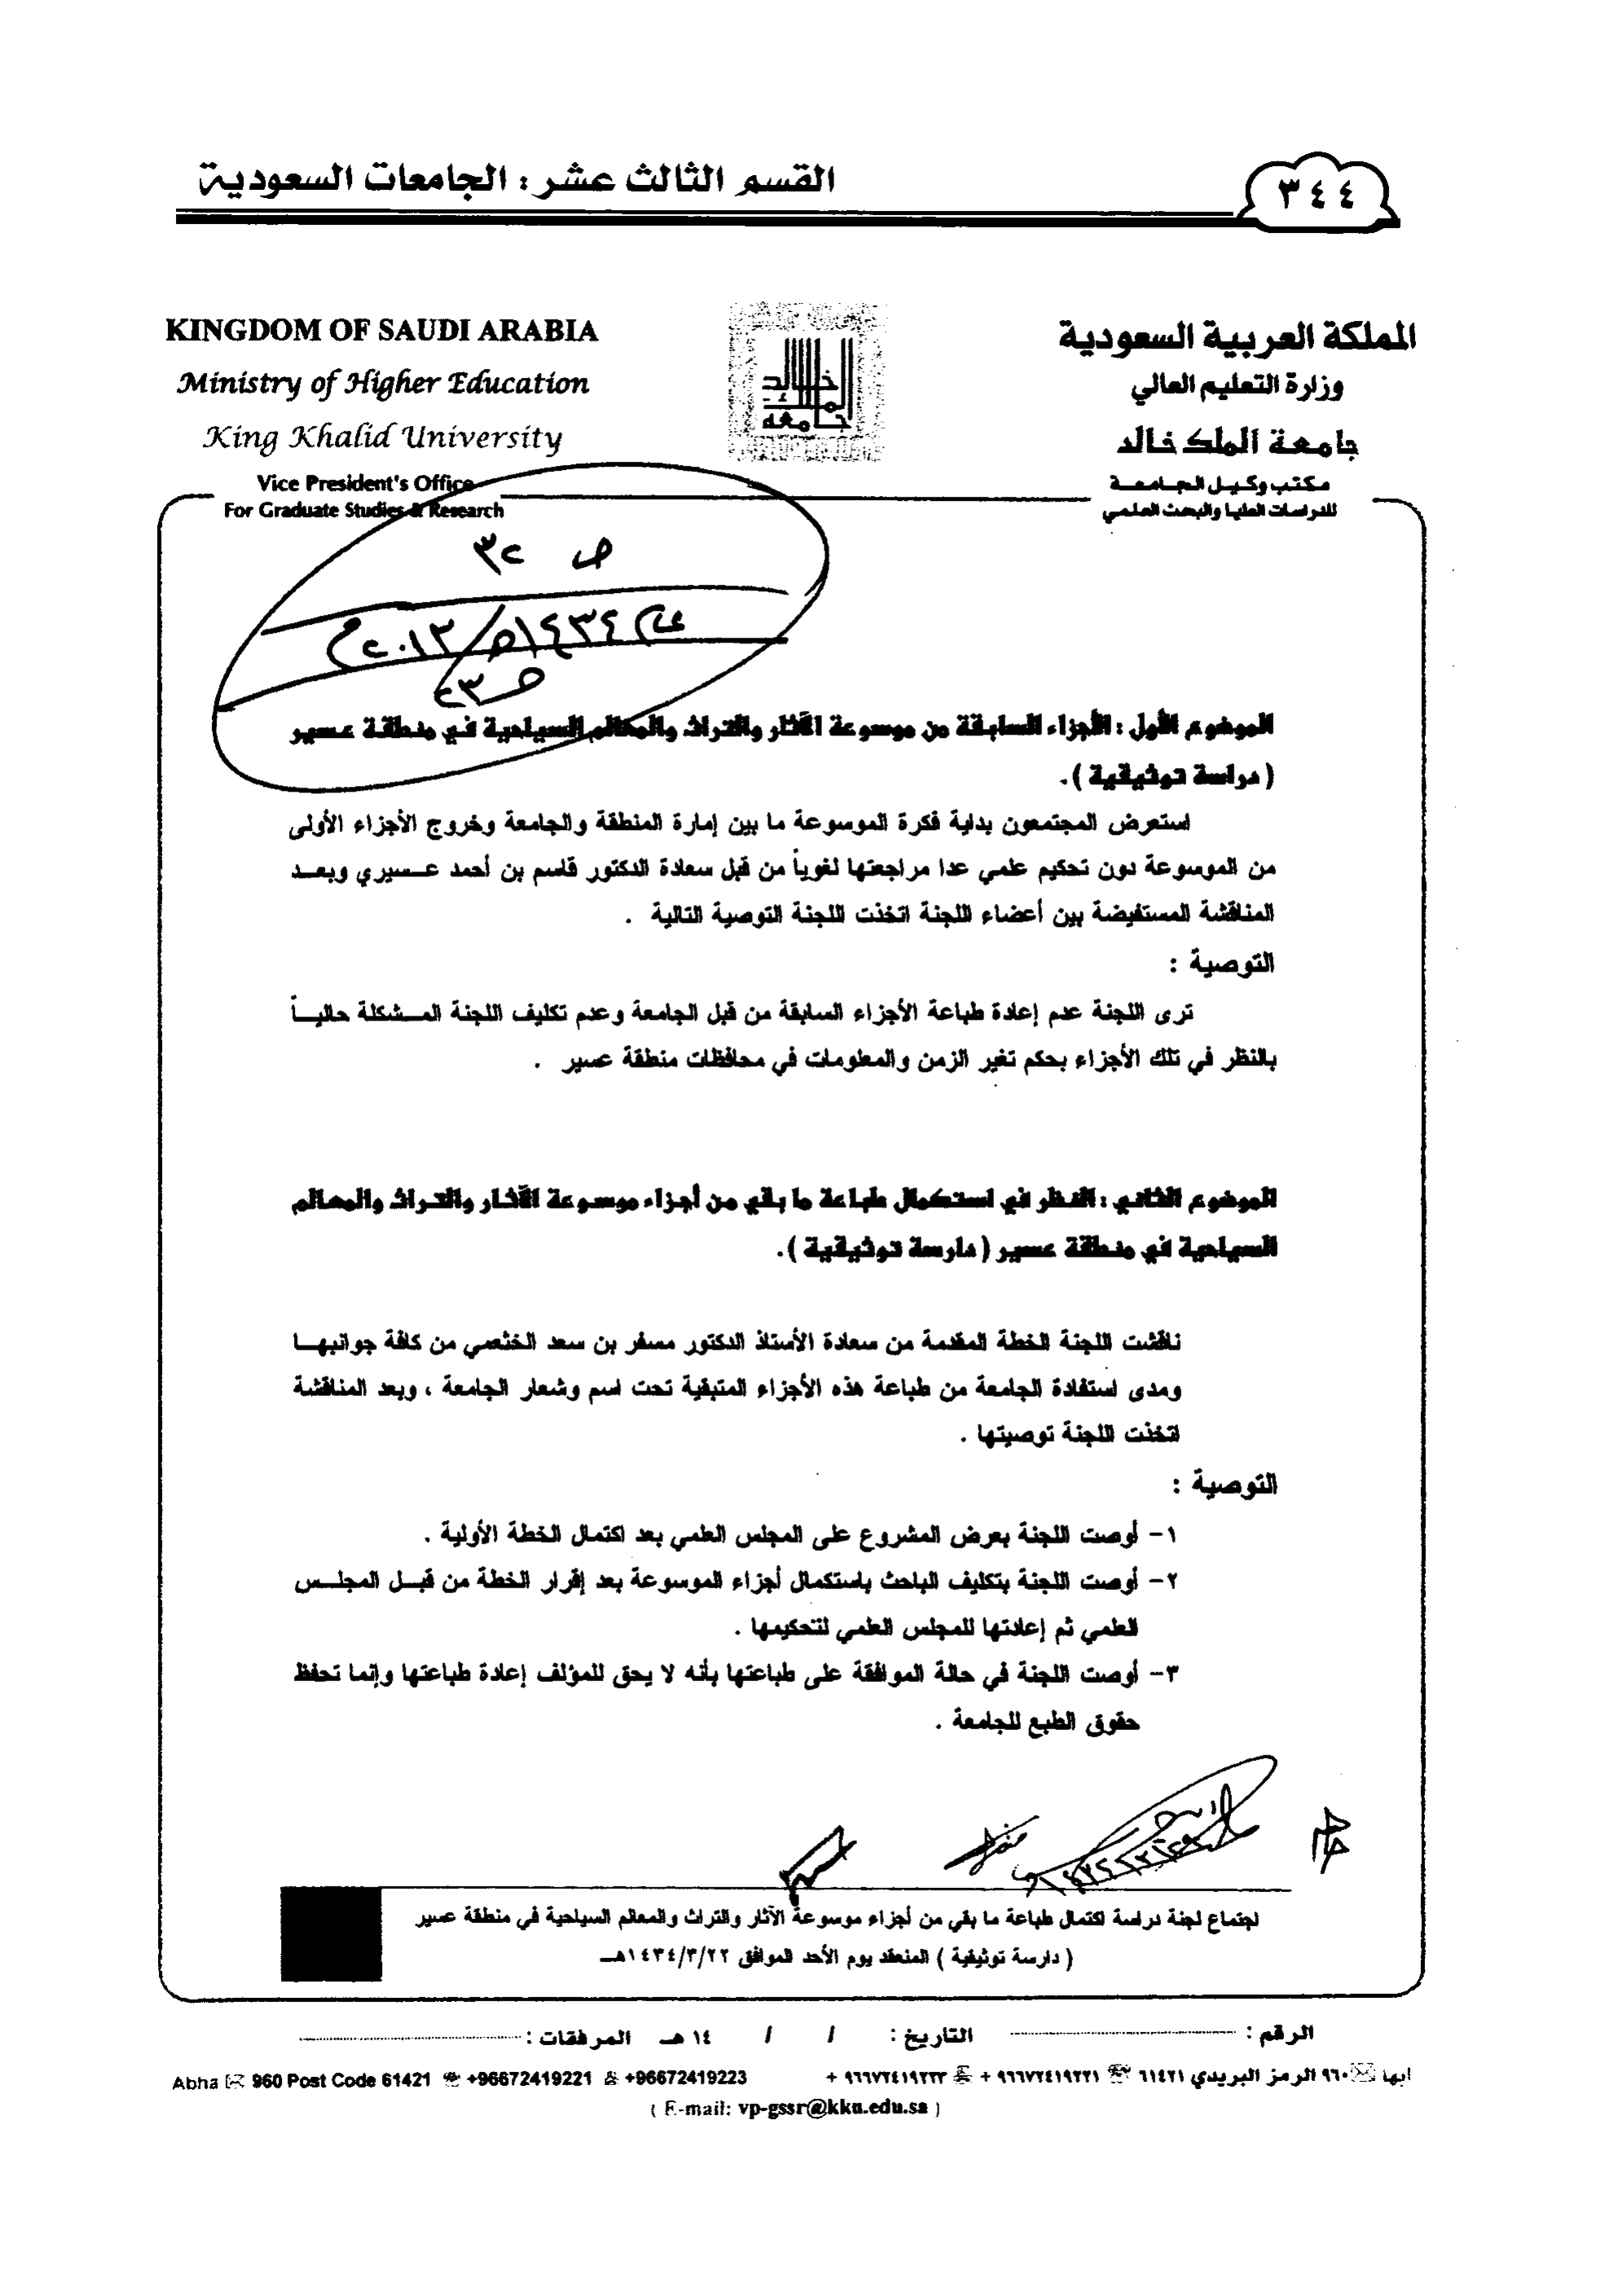 القسم الثالث عشر : الجامعات السعودية
٣٤٤
KINGDOM OF SAUDI ARABIA
Ministry of Higher Education
King Khalid University
Vice President's Office
For Graduate Studies & Research
جامعة الملك خالد
المملكة العربية السعودية
وزارة التعليم العالي
جامعة الملك خالد
مكتب وكيل الجامعة
للدراسات العليا والبحث العلمي
ص ٣٢
عام ١٤٣٤هـ/٢٠١٣م
ص ٢٣
الموضوع الأول : الأجزاء السابقة من موسوعة الآثار والتراث والمعالم السياحية في منطقة عسير
( دراسة توثيقية ) .
استعرض المجتمعون بداية فكرة الموسوعة ما بين إمارة المنطقة والجامعة وخروج الأجزاء الأولى
من الموسوعة دون تحكيم علمي عدا مراجعتها لغوياً من قبل سعادة الدكتور قاسم بن أحمد عسيري وبعد
المناقشة المستفيضة بين أعضاء اللجنة اتخذت اللجنة التوصية التالية .
التوصية :
ترى اللجنة عدم إعادة طباعة الأجزاء السابقة من قبل الجامعة وعدم تكليف اللجنة المشكلة حالياً
بالنظر في تلك الأجزاء بحكم تغير الزمن والمعلومات في محافظات منطقة عسير .
الموضوع الثاني : النظر في استكمال طباعة ما بقي من أجزاء موسوعة الآثار والتراث والمعالم
السياحية في منطقة عسير ( دارسة توثيقية ) .
ناقشت اللجنة الخطة المقدمة من سعادة الأستاذ الدكتور مسفر بن سعد الخثعمي من كافة جوانبها
ومدى استفادة الجامعة من طباعة هذه الأجزاء المتبقية تحت اسم وشعار الجامعة ، وبعد المناقشة
اتخذت اللجنة توصيتها .
التوصية :
١- أوصت اللجنة بعرض المشروع على المجلس العلمي بعد اكتمال الخطة الأولية .
٢- أوصت اللجنة بتكليف الباحث باستكمال أجزاء الموسوعة بعد إقرار الخطة من قبل المجلس
العلمي ثم إعادتها للمجلس العلمي لتحكيمها .
٣- أوصت اللجنة في حالة الموافقة على طباعتها بأنه لا يحق للمؤلف إعادة طباعتها وإنما تحفظ
حقوق الطبع للجامعة .
اجتماع لجنة دراسة اكتمال طباعة ما بقي من أجزاء موسوعة الآثار والتراث والمعالم السياحية في منطقة عسير
( دارسة توثيقية ) المنعقد يوم الأحد الموافق ١٤٣٤/٣/٢٢هـ
الرقم : التاريخ : / / ١٤ هـ المرفقات :
ابها ٩٦٠ الرمز البريدي ٦١٤٢١ ٩٦٦٧٢٤١٩٢٢١ + ٩٦٦٧٢٤١٩٢٢٣ +
Abha 960 Post Code 61421 +96672419221 +96672419223
( E-mail: vp-gssr@kku.edu.sa )